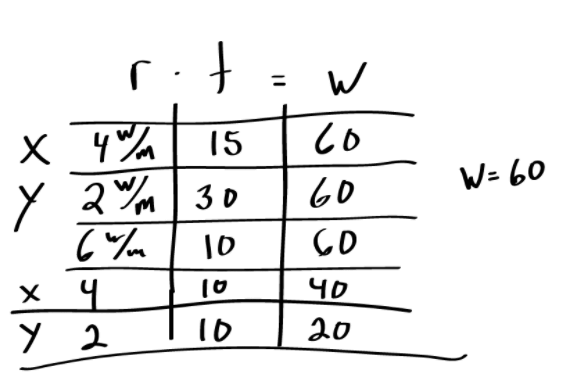 r · t = w
X 4 w/m 15 60
Y 2 w/m 30 60
W = 60
6 w/m 10 60
x 4 10 40
y 2 10 20